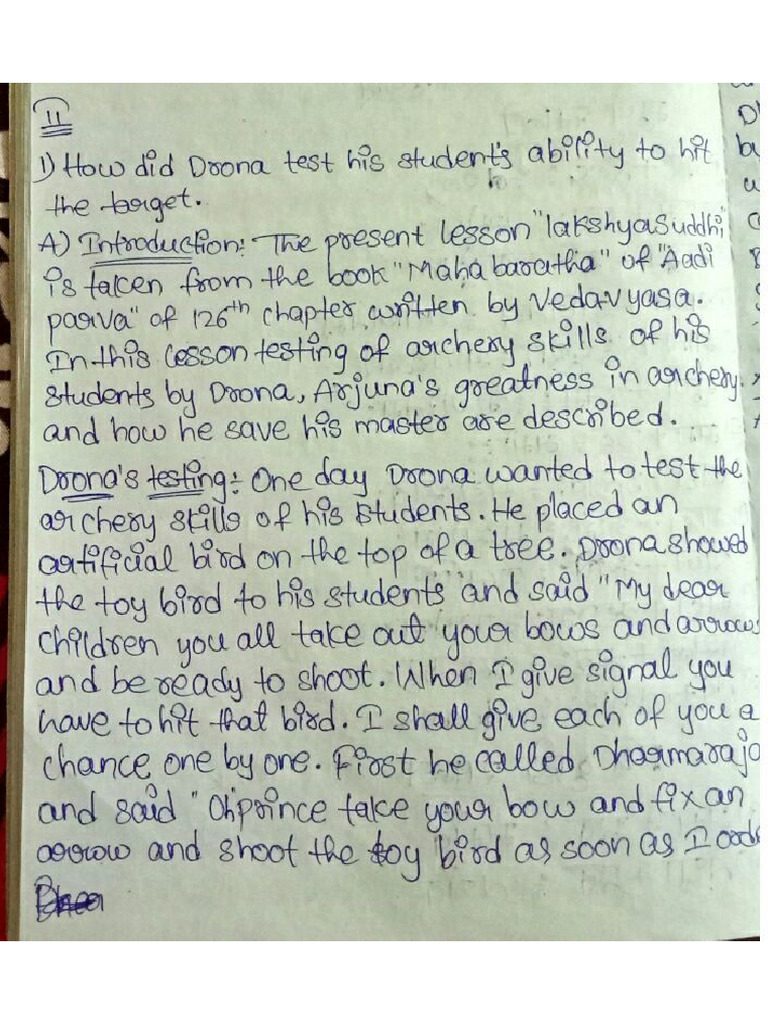 11
1) How did Drona test his student's ability to hit
the target.
A) Introduction: The present lesson "lakshyasuddhi"
is taken from the book "Mahabaratha" of "Aadi
parva" of 126th chapter written by Vedavyasa.
In this lesson testing of archery skills of his
students by Drona, Arjuna's greatness in archery.
and how he save his master are described.
Drona's testing: One day Drona wanted to test the
archery skills of his students. He placed an
artificial bird on the top of a tree. Drona showed
the toy bird to his students and said "My dear
children you all take out your bows and arrows
and be ready to shoot. When I give signal you
have to hit that bird. I shall give each of you a
chance one by one. First he called Dharmaraja
and said "Oh prince take your bow and fix an
arrow and shoot the toy bird as soon as I